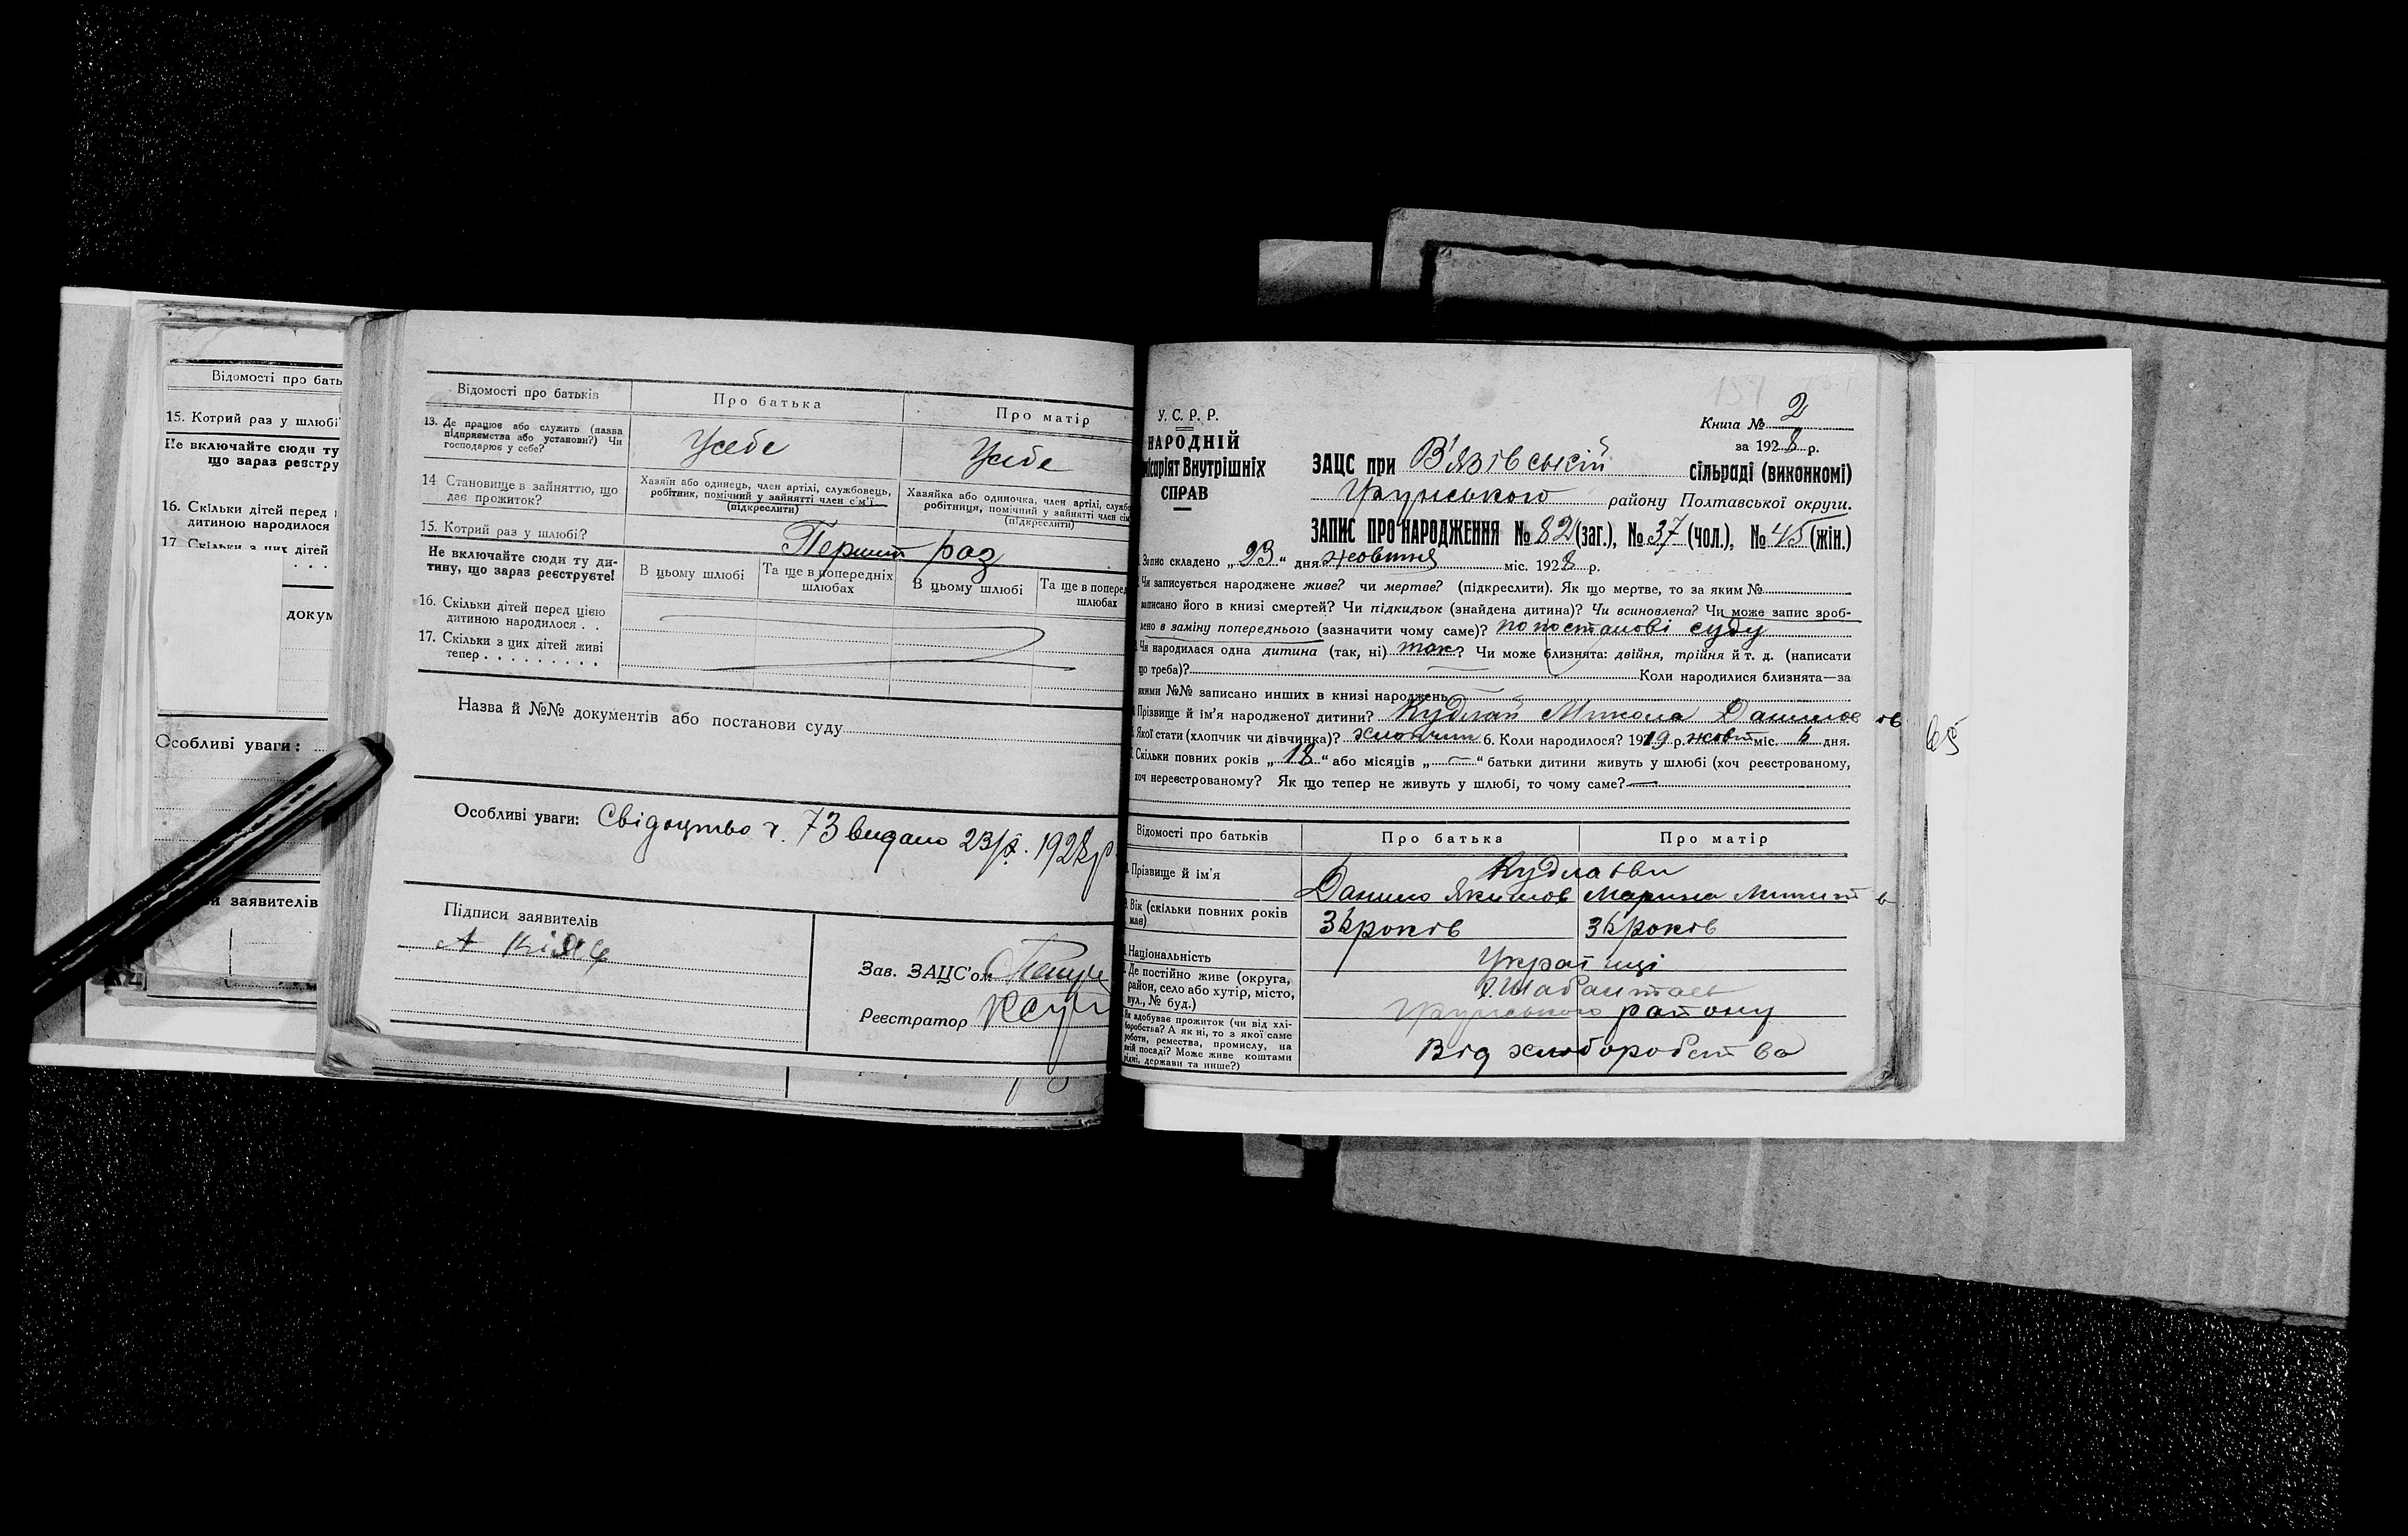 Відомості про бать
15. Котрий раз у шлюбі
Не включайте сюди ту
що зараз реєстру
16. Скільки дітей перед
дитиною народилося
17. Скільки з цих дітей
докум
Особливі уваги:
заявителів
Відомості про батьків
Про батька
Про матір
13. Де працює або служить (назва
підприємства або установи?) Чи
господарює у себе?
Усебе
Усебе
14 Становище в зайняттю, що
дає прожиток?
Хазяїн або одинець, член артілі, службовець,
робітник, помічний у зайнятті член с'м'ї.
(підкреслити)
Хазяйка або одиночка, член артілі, служб
робітниця, помічний у зайнятті член сім
(підкреслити)
15. Котрий раз у шлюбі?
Перший раз
Не включайте сюди ту ди-
тину, що зараз реєструєте!
В цьому шлюбі
Та ще в попередніх
шлюбах
В цьому шлюбі
Та ще в поперед
шлюбах
16. Скільки дітей перед цією
дитиною народилося . .
17. Скільки з цих дітей живі
тепер . . . . . . . . .
Назва й №№ документів або постанови суду
Особливі уваги: Свідоцтво ч. 73 видано 23/X. 1928 р
Підписи заявителів
Зав. ЗАЦС'ом
Реєстратор
У. С. Р. Р.
НАРОДНІЙ
місаріят Внутрішніх
СПРАВ
Книга № 2
за 1928 р.
ЗАЦС при В'язівській сільраді (виконкомі)
району Полтавської округи.
ЗАПИС ПРО НАРОДЖЕННЯ № 82 (заг.), № 37 (чол.), № 45 (жін.)
Запис складено „23“ дня жовтня міс. 1928 р.
Чи записується народжене живе? чи мертве? (підкреслити). Як що мертве, то за яким №
записано його в книзі смертей? Чи підкидьок (знайдена дитина)? Чи всиновлена? Чи може запис зроб-
лено в заміну попереднього (зазначити чому саме)? по постанові суду
Чи народилася одна дитина (так, ні) так? Чи може близнята: двійня, трійня й т. д. (написати
що треба)? Коли народилися близнята—за
якими №№ записано инших в книзі народжень
Прізвище й ім'я народженої дитини? Кудлай Микола Данилов ів
Якої стати (хлопчик чи дівчинка)? хлопчик 6. Коли народилося? 1919 р. жовт міс. 6 дня.
Скільки повних років „18“ або місяців „—“ батьки дитини живуть у шлюбі (хоч реєстрованому,
хоч нереєстрованому? Як що тепер не живуть у шлюбі, то чому саме? —
65
Відомості про батьків
Про батька
Про матір
Прізвище й ім'я
Кудлаєви
Данило Якимов
Марина Микит в
Вік (скільки повних років
має)
36 років
36 років
Національність
Українці
Де постійно живе (округа,
район, село або хутір, місто,
вул., № буд.)
району
Як здобуває прожиток (чи від хлі-
боробства? А як ні, то з якої саме
роботи, ремества, промислу, на
якій посаді? Може живе коштами
рідні, держави та инше?)
Від хліборобства